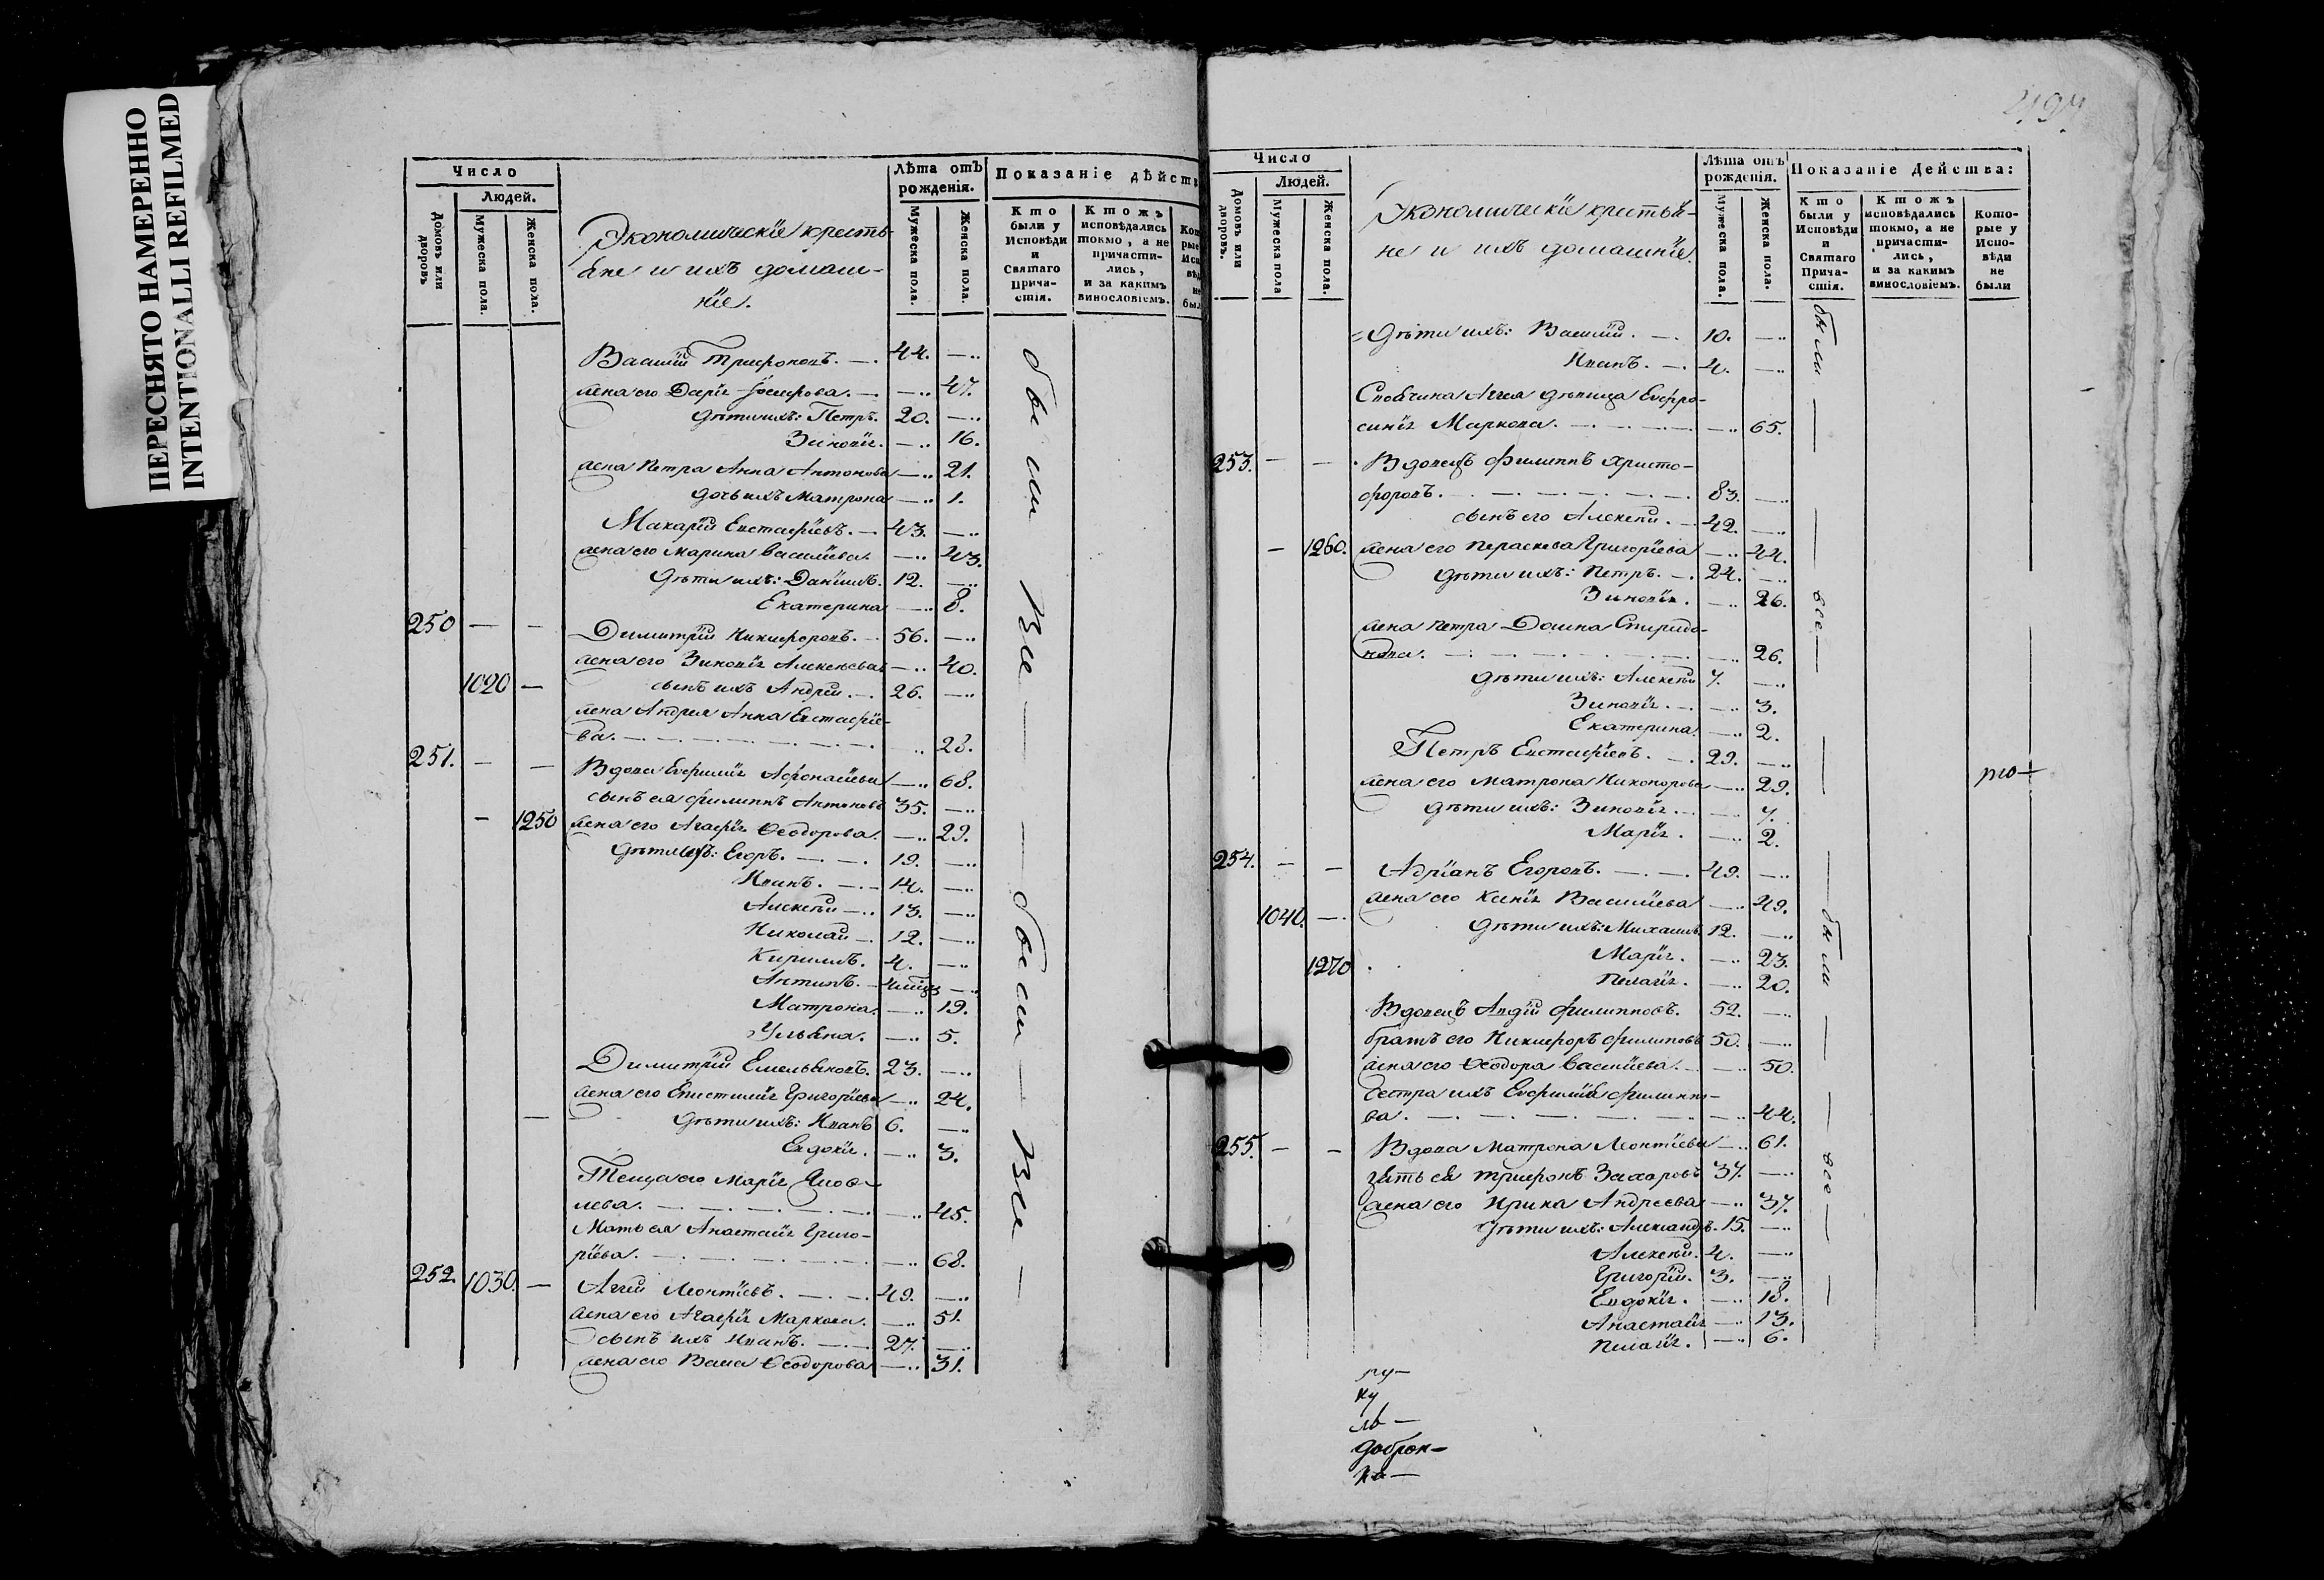 ПЕРЕСНЯТО НАМЕРЕННО
INTENTIONALLI REFILMED
Число
Людей.
Домовъ или дворовъ
Мужеска пола.
Женска пола.
Экономическіе кресть-
яне и ихъ домаш-
ніе.
Лѣта отъ рожденія.
Мужеска пола.
Женска пола.
Показаніе дѣйств
Кто были у Исповѣди и Святаго Прича-стія.
Ктожъ исповѣдались токмо, а не причасти-лись, и за какимъ винословіемъ.
Василій Трифоновъ. 44.
жена его Дарія Іосифова. 47.
дѣти ихъ: Петръ. 20.
Зиновія. 16.
жена Петра Анна Антонова 21.
дочь ихъ Матрона 1.
Макарій Евстафіевъ. 43.
жена его Марина Василіева. 43.
дѣти ихъ: Даніилъ. 12.
Екатерина 8.
250 Димитрій Никифоровъ. 56.
жена его Зиновія Алексѣева 40.
1020 сынъ ихъ Андрей. 26.
жена Андрея Анна Евстафіе-
ва. 28.
251. Вдова Евфимія Афонасіева 68.
сынъ ея Филиппъ Антоновъ 35.
1250 жена его Агафія Ѳеодорова. 29.
дѣти ихъ: Егоръ. 19.
Иванъ. 14.
Алексѣй 13.
Николай 12.
Кириллъ. 4.
Антипъ.
Матрона. 19.
Ульяна. 5.
Димитрій Емельяновъ. 23.
жена его Епистимія Григоріева 24.
дѣти ихъ: Иванъ 6.
Евдокія. 3.
Теща его Марія Яков-
лева. 45.
Мать ея Анастасія Григо-
ріева. 68.
252. 1030. Аггей Леонтіевъ. 49.
жена его Агафія Маркова. 51.
сынъ ихъ Иванъ. 27.
жена его Васса Ѳеодорова 31.
были
Все
были
Все
Число
Людей.
Домовъ или дворовъ.
Мужеска пола
Женска пола.
Экономическіе крестья-
не и ихъ домашніе.
Лѣта отъ рожденія.
Мужеска пола.
Женска пола.
Показаніе Действа:
Кто были у Исповѣди и Святаго Прича-стія.
Ктожъ исповѣдались токмо, а не причасти-лись, и за какимъ винословіемъ.
Кото-рые у Испо-вѣди не были
дѣти ихъ: Василій. 10.
Иванъ. 4.
Своячина Аггея дѣвица Евфро-
синія Маркова. 65.
253. Вдовецъ Филиппъ Христо-
форовъ. 83.
сынъ его Алексѣй. 42.
1260. жена его Пераскева Григоріева 44.
дѣти ихъ: Петръ. 24.
Зиновія. 26.
жена Петра Домна Спиридо-
нова. 26.
дѣти ихъ: Алексѣй 7.
Зиновія. 3.
Екатерина. 2.
Петръ Евстафіевъ. 29.
жена его Матрона Никонорова 29.
дѣти ихъ: Зиновія. 7.
Марія. 2.
254. Адріанъ Егоровъ. 49.
жена его Ксенія Василіева 49.
1040. дѣти ихъ: Михаилъ. 12.
1270 Марія. 23.
Пелагія. 20.
Вдовецъ Авдій Филипповъ. 52.
братъ его Никифоръ Филиповъ 50.
жена его Ѳеодора Василіева. 50.
сестра ихъ Евфимія Филиппо-
ва. 44.
255. Вдова Матрона Леонтіева 61.
зять ея Трифонъ Захаровъ 37.
жена его Ирина Андреева 37.
дѣти ихъ: Александръ. 15.
Алексѣй. 4.
Григорій. 3.
Евдокія. 18.
Анастасія 13.
Пелагія. 6.
были
все
были
все
ру-
ку
добров-